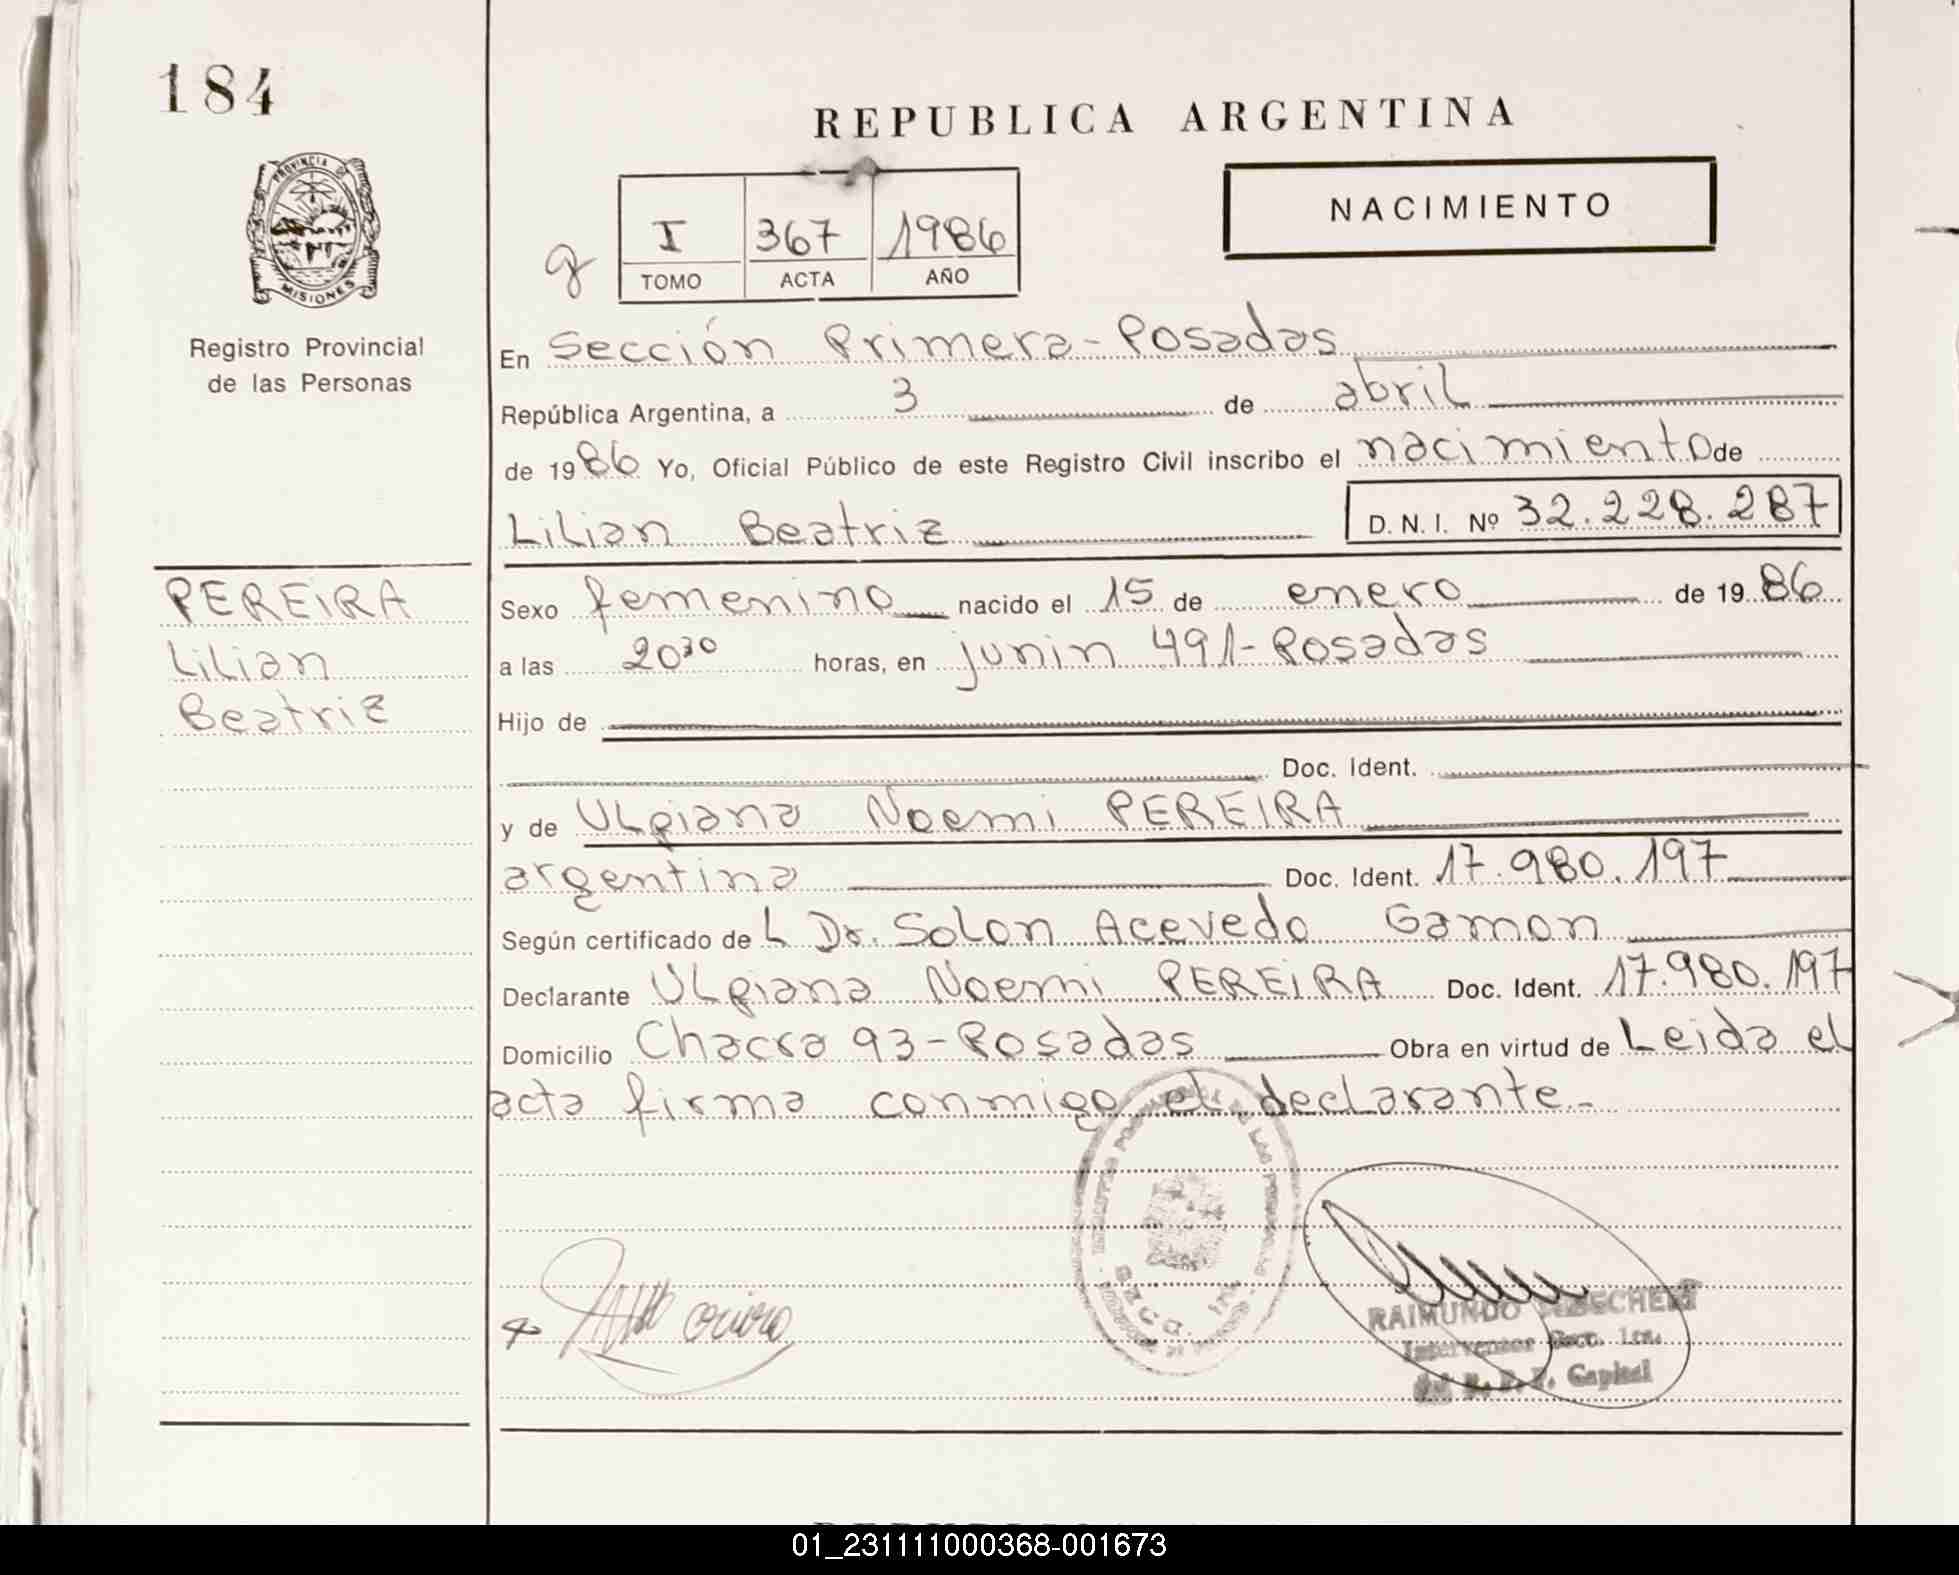 184
REPUBLICA ARGENTINA
PROVINCIA DE
MISIONES
Registro Provincial
de las Personas
I 367 1986
TOMO ACTA AÑO
NACIMIENTO
En Sección Primera-Posadas
República Argentina, a 3 de abril
de 1986 Yo, Oficial Público de este Registro Civil inscribo el nacimiento de
Lilian Beatriz D. N. I. Nº 32.228.287
PEREIRA
Lilian
Beatriz
Sexo femenino nacido el 15 de enero de 1986
a las 20³⁰ horas, en junin 491-Posadas
Hijo de
Doc. Ident.
y de ULpiana Noemi PEREIRA
argentina Doc. Ident. 17.980.197
Según certificado de L Dr. Solon Acevedo Gamon
Declarante ULpiana Noemi PEREIRA Doc. Ident. 17.980.197
Domicilio Chacra 93-Posadas Obra en virtud de Leida el
acta firma conmigo el declarante.-
RAIMUNDO
Interventor Secc. 1ra.
R. P. P. Capital
01_231111000368-001673